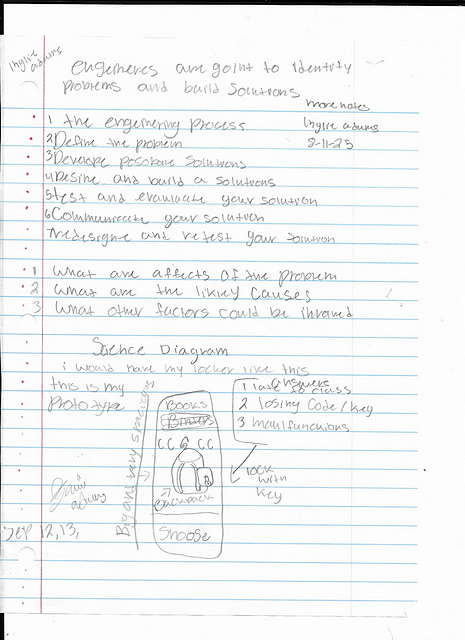 Engemeres are goint to identity
problems and build Solutions
more notes
1 the engemering process
2 Define the problem
3 Develope possbale solutions
4 Desine and build a solutions
5 test and evaluate your solution
6 Communicate your solution
7 redesigne and retest your solution
adums
8-11-25
1 What are affects of the problem
2 What are the likley causes
3 What other factors could be
Science Diagram
i would have my locker like this
this is my
Prototype
Books
Binders
C C C C C
Backpack
Shoose
Big and very
answers
1 late to class
2 losing Code/key
3 maulfunctions
lock
with
key
adums
Sep 12, 13,